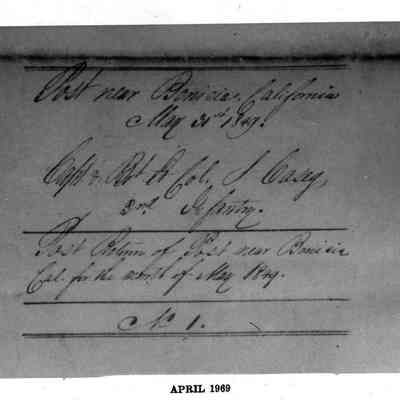 Post near Benicia, California
May 31st 1849.
Capt & Bt Lt Col. S Casey,
2nd Infantry.
Post Return of Post near Benicia
Cal. for the month of May 1849.
No 1.
APRIL 1969